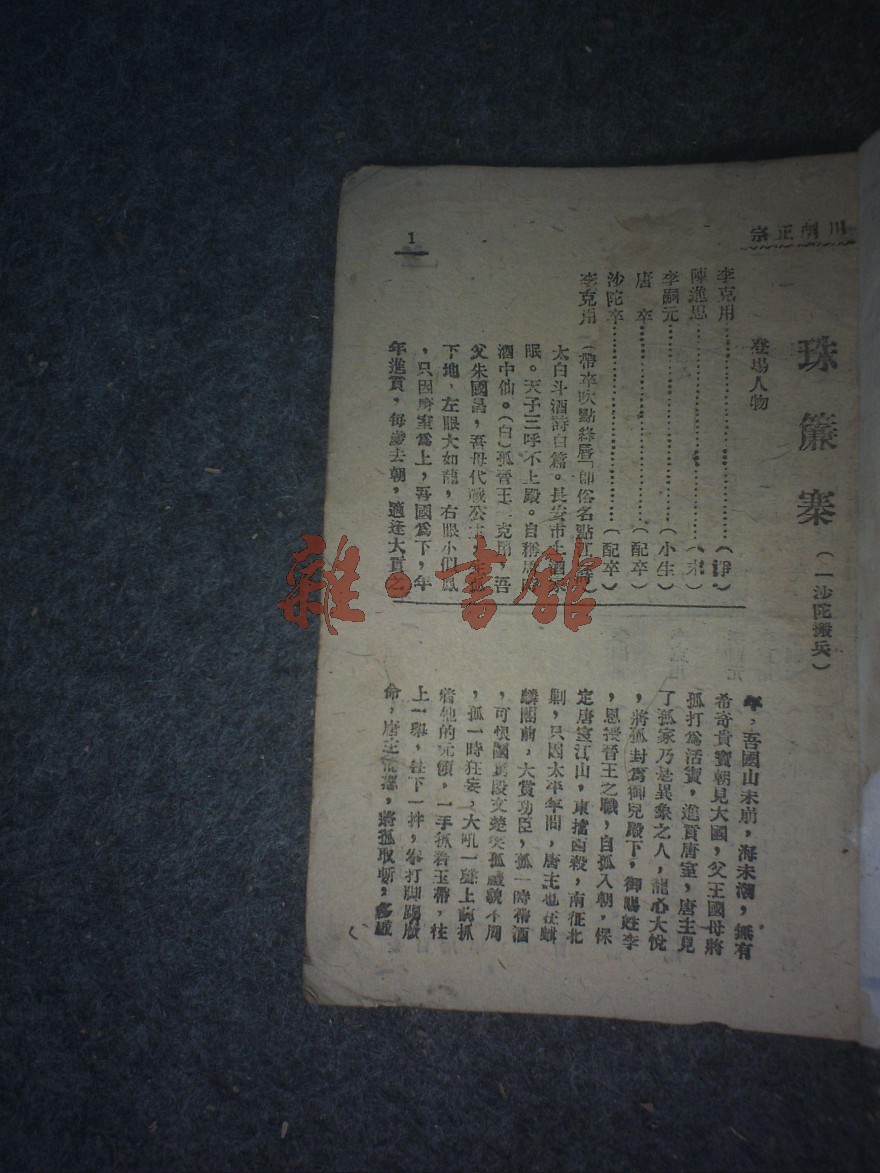 川劇正宗
珠簾寨
(一沙陀搬兵)
登場人物
李克用……(淨)
陳進思……(末)
李嗣元……(小生)
唐　卒……(配卒)
沙陀卒……(配卒)
李克用　(帶卒吹點絳唇「即俗名點江
太白斗酒詩白篇。長安市上酒家
眠。天子三呼不上殿。自稱
酒中仙。(白)孤晉王 克用，吾
父朱國昌，吾母代戰公主，生孤
下地，左眼大如龍，右眼小似鳳
，只因唐室爲上，吾國爲下，年
年進貢，每歲去朝，適逢大貢之
年，吾國山未崩，海未潮，無有
希奇貴寶朝見大國，父王國母將
孤打爲活寶，進貢唐室，唐主見
了孤家乃是異象之人，龍心大悅
，將孤封爲御兒殿下，御賜姓李
，恩授晉王之職，自孤入朝，保
定唐室江山，東擋西殺，南征北
剿，只因太平年間，唐主也在麒
麟閣前，大賞功臣，孤一時帶酒
，可恨國舅段文楚笑孤禮貌不周
，孤一時狂妄，大吼一聲上前抓
着他的元領，一手抓着玉帶，往
上一舉，往下一拌，拳打脚踢廢
命，唐主 將孤取斬，多虧
1
雜·書館